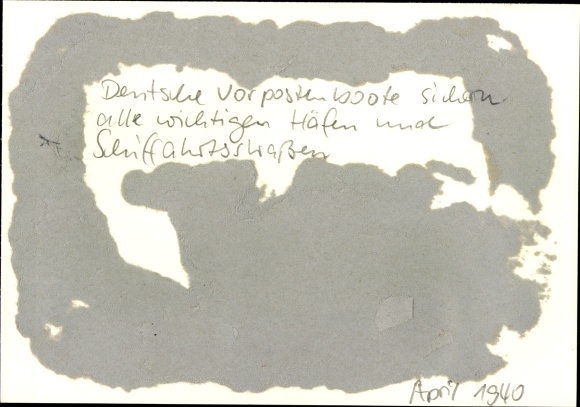 Deutsche Vorpostenboote sichern
alle wichtigen Häfen und
Schiffahrtsstraßen
April 1940